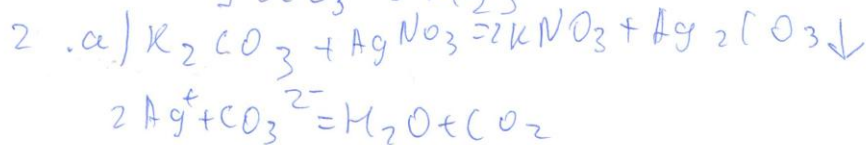 2 .a) K₂CO₃ + AgNO₃ = 2KNO₃ + Ag₂CO₃↓
2Ag⁺ + CO₃²⁻ = H₂O + CO₂